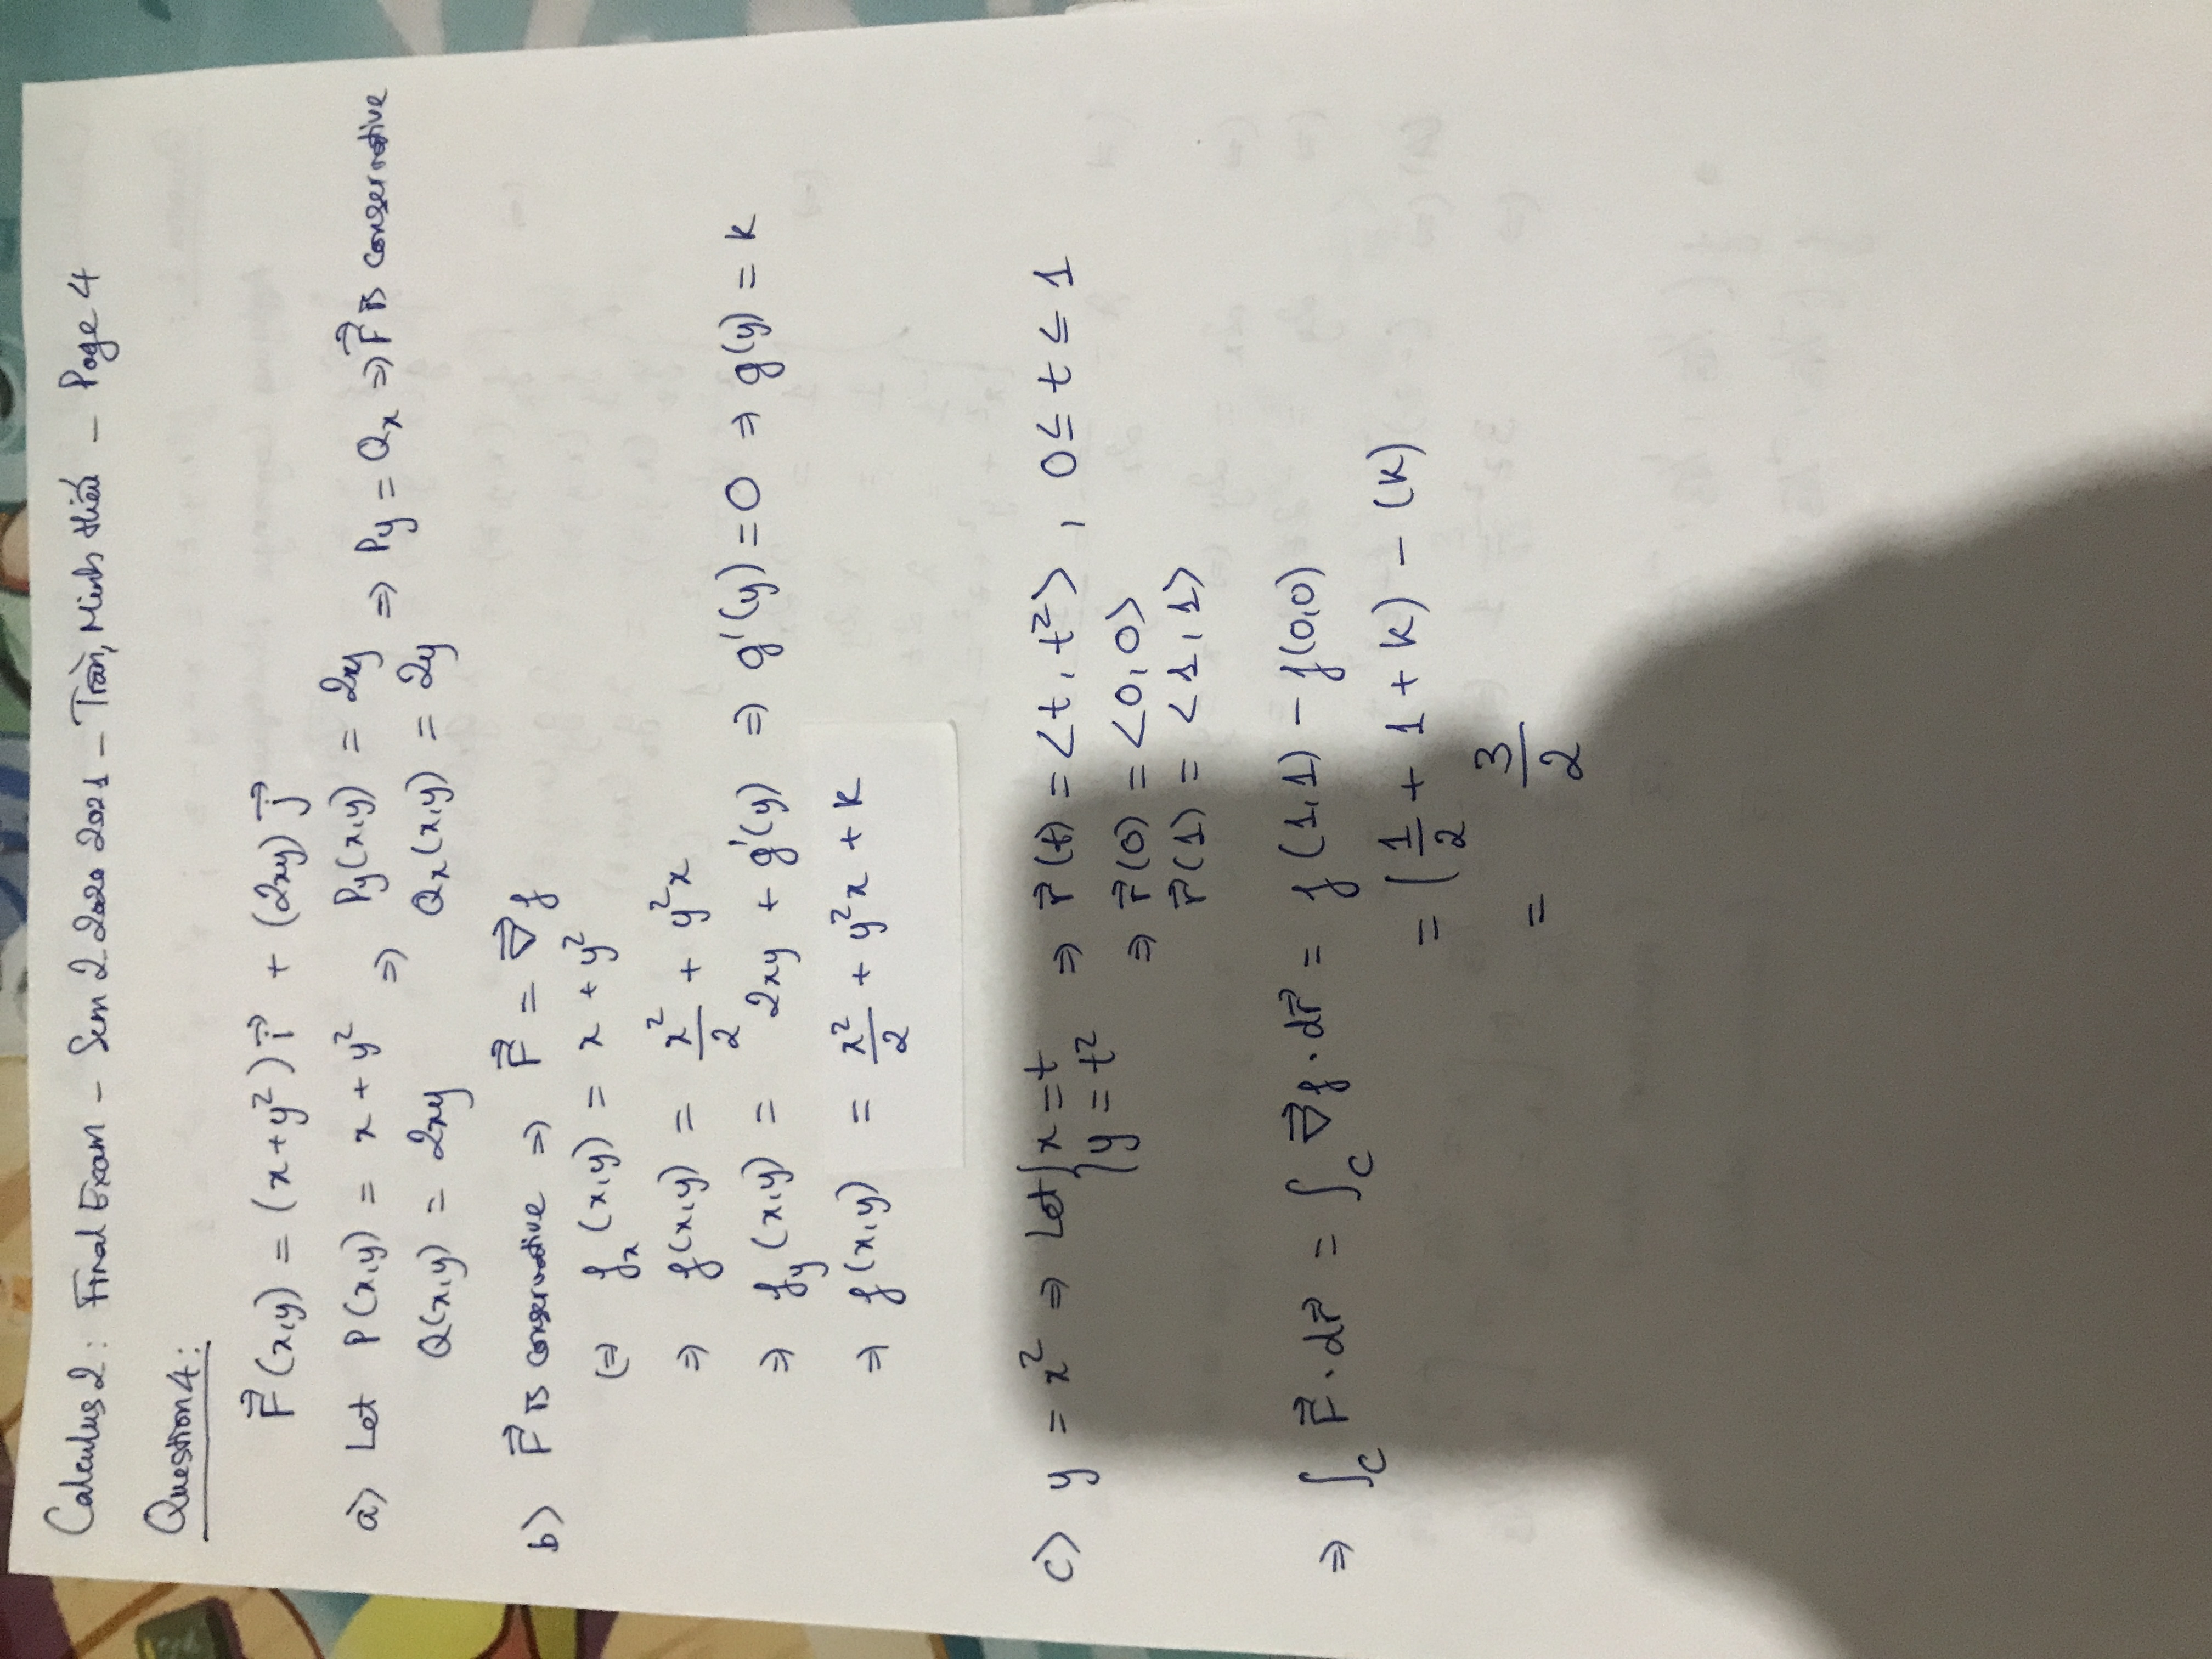 Calculus 2: Final Exam – Sem 2 2020 2021 – Trần, Minh Hiếu – Page 4
Question 4:
F⃗(x,y) = (x+y²) i⃗ + (2xy) j⃗
a) Let P(x,y) = x + y² ⇒ Py(x,y) = 2y ⇒ Py = Qx ⇒ F⃗ is conservative
Q(x,y) = 2xy Qx(x,y) = 2y
b) F⃗ is conservative ⇒ F⃗ = ∇⃗f
(⇒ fx(x,y) = x + y²
⇒ f(x,y) = x²/2 + y²x
⇒ fy(x,y) = 2xy + g'(y) ⇒ g'(y) = 0 ⇒ g(y) = k
⇒ f(x,y) = x²/2 + y²x + k
c) y = x² ⇒ Let { x = t ⇒ r⃗(t) = <t, t²>, 0 ≤ t ≤ 1
y = t²
⇒ r⃗(0) = <0,0>
r⃗(1) = <1,1>
⇒ ∫C F⃗ · dr⃗ = ∫C ∇⃗f · dr⃗ = f(1,1) – f(0,0)
= (1/2 + 1 + k) – (k)
= 3/2